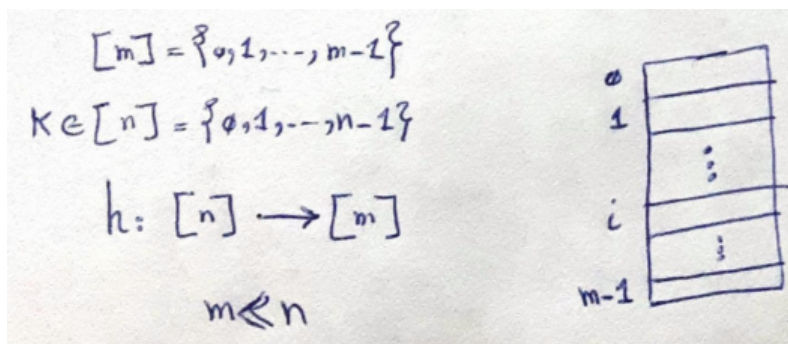 [m] = {0,1,...,m-1}
K ∈ [n] = {0,1,...,n-1}
h: [n] → [m]
m ≪ n
0
1
⋮
i
⋮
m-1